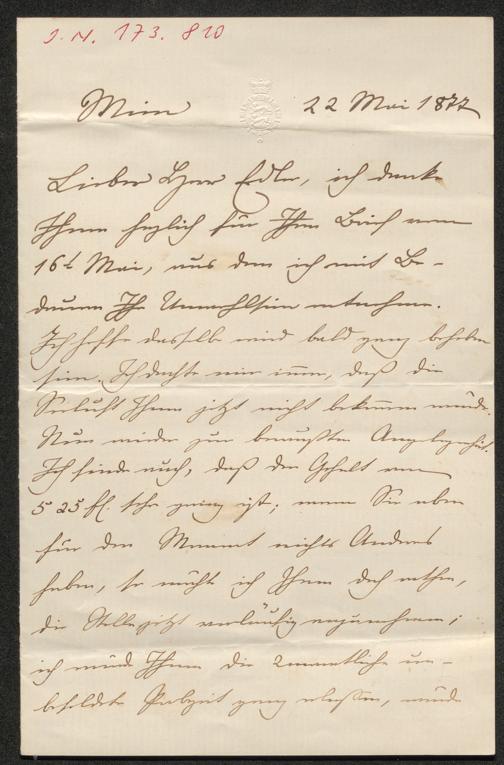 J. N. 173. 810
Wien 22 Mai 1877
Lieber Herr Edler, ich danke
Ihnen herzlich für Ihren Brief vom
16t Mai, aus dem ich mit Be-
dauern Ihr Unwohlsein entnehme.
Ich hoffe dasselbe wird bald ganz behoben
sein. Ich dachte mir immer, daß die
Seeluft Ihnen jetzt nicht bekommen würde.
Nun wieder zur bewußten Angelegenheit.
Ich finde auch, daß der Gehalt von
525 fl. sehr gering ist; wenn Sie aber
für den Moment nichts Anders
haben, so möchte ich Ihnen doch rathen,
die Stelle jetzt vorläufig anzunehmen;
ich würde Ihnen die 2monatliche un-
besoldete Probezeit ganz erlassen, würde